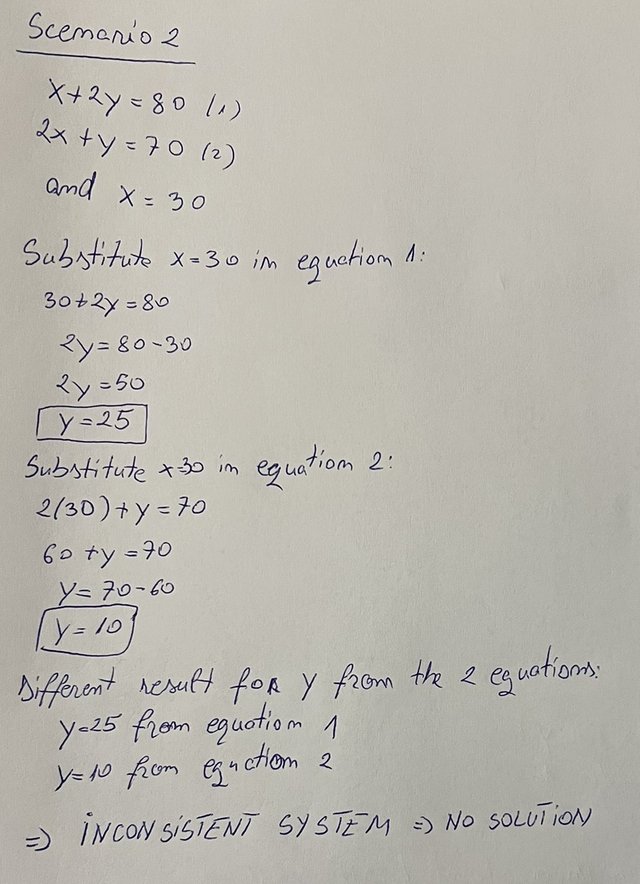 Scenario 2
x+2y=80 (1)
2x+y=70 (2)
and x=30
Substitute x=30 in equation 1:
30+2y=80
2y=80-30
2y=50
y=25
Substitute x=30 in equation 2:
2(30)+y=70
60+y=70
y=70-60
y=10
Different result for y from the 2 equations:
y=25 from equation 1
y=10 from equation 2
=> INCONSISTENT SYSTEM => NO SOLUTION